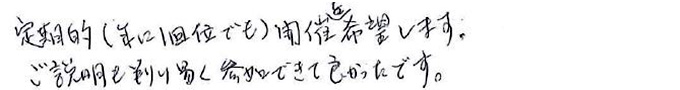 定期的(年に1回位でも)開催を希望します。
ご説明も判り易く参加できて良かったです。